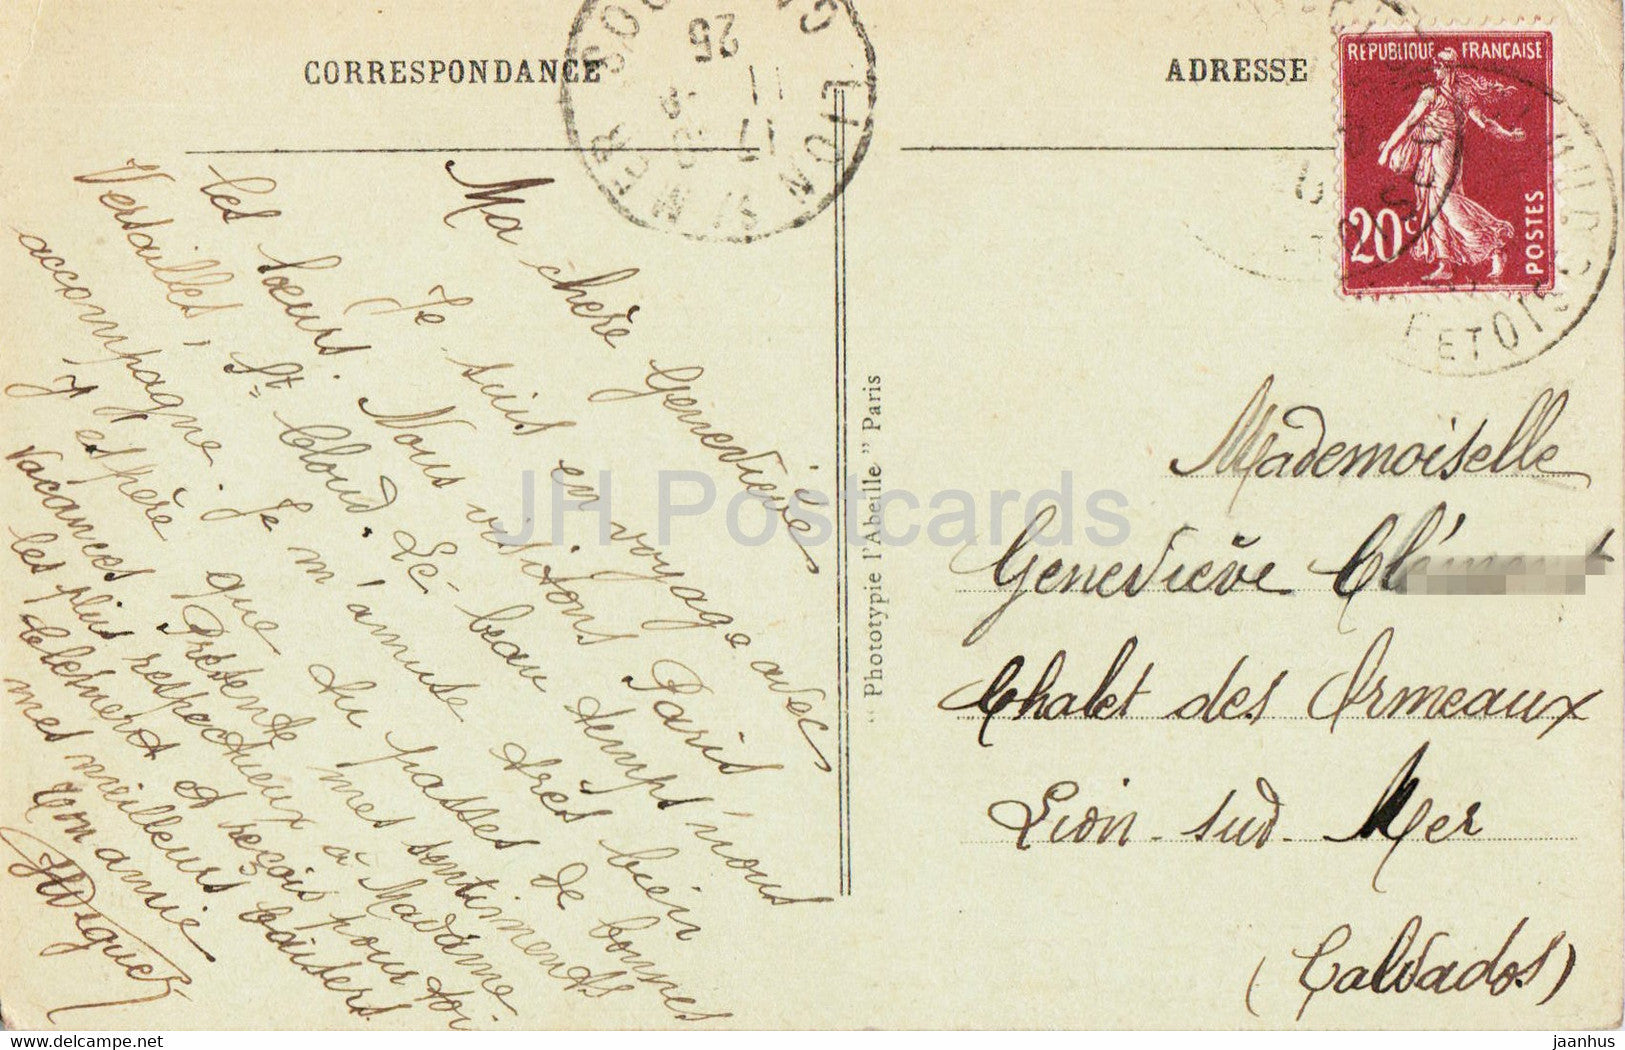 CORRESPONDANCE
ADRESSE
LION S/ MER
11
25
REPUBLIQUE FRANÇAISE
20c
POSTES
Ma chère Geneviève
Je suis en voyage avec
les sœurs. Nous visitons Paris
Versailles, St Cloud. Le beau temps nous
accompagne. Je m'amuse très bien
J'espère que tu passes de bonnes
vacances. Présente mes sentiments
les plus respectueux à Madame
Clément et reçois pour toi
mes meilleurs baisers
Ton amie
"Phototypie l'Abeille" Paris
Mademoiselle
Geneviève Clément
Chalet des Ormeaux
Lion-sur-Mer
(Calvados)
JH Postcards
For sale www.delcampe.net
jaanhus